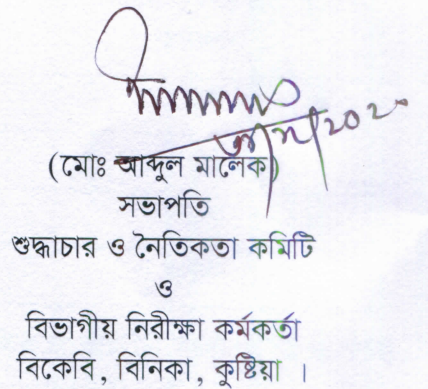 (মোঃ আব্দুল মালেক)
সভাপতি
শুদ্ধাচার ও নৈতিকতা কমিটি
ও
বিভাগীয় নিরীক্ষা কর্মকর্তা
বিকেবি, বিনিকা, কুষ্টিয়া ।